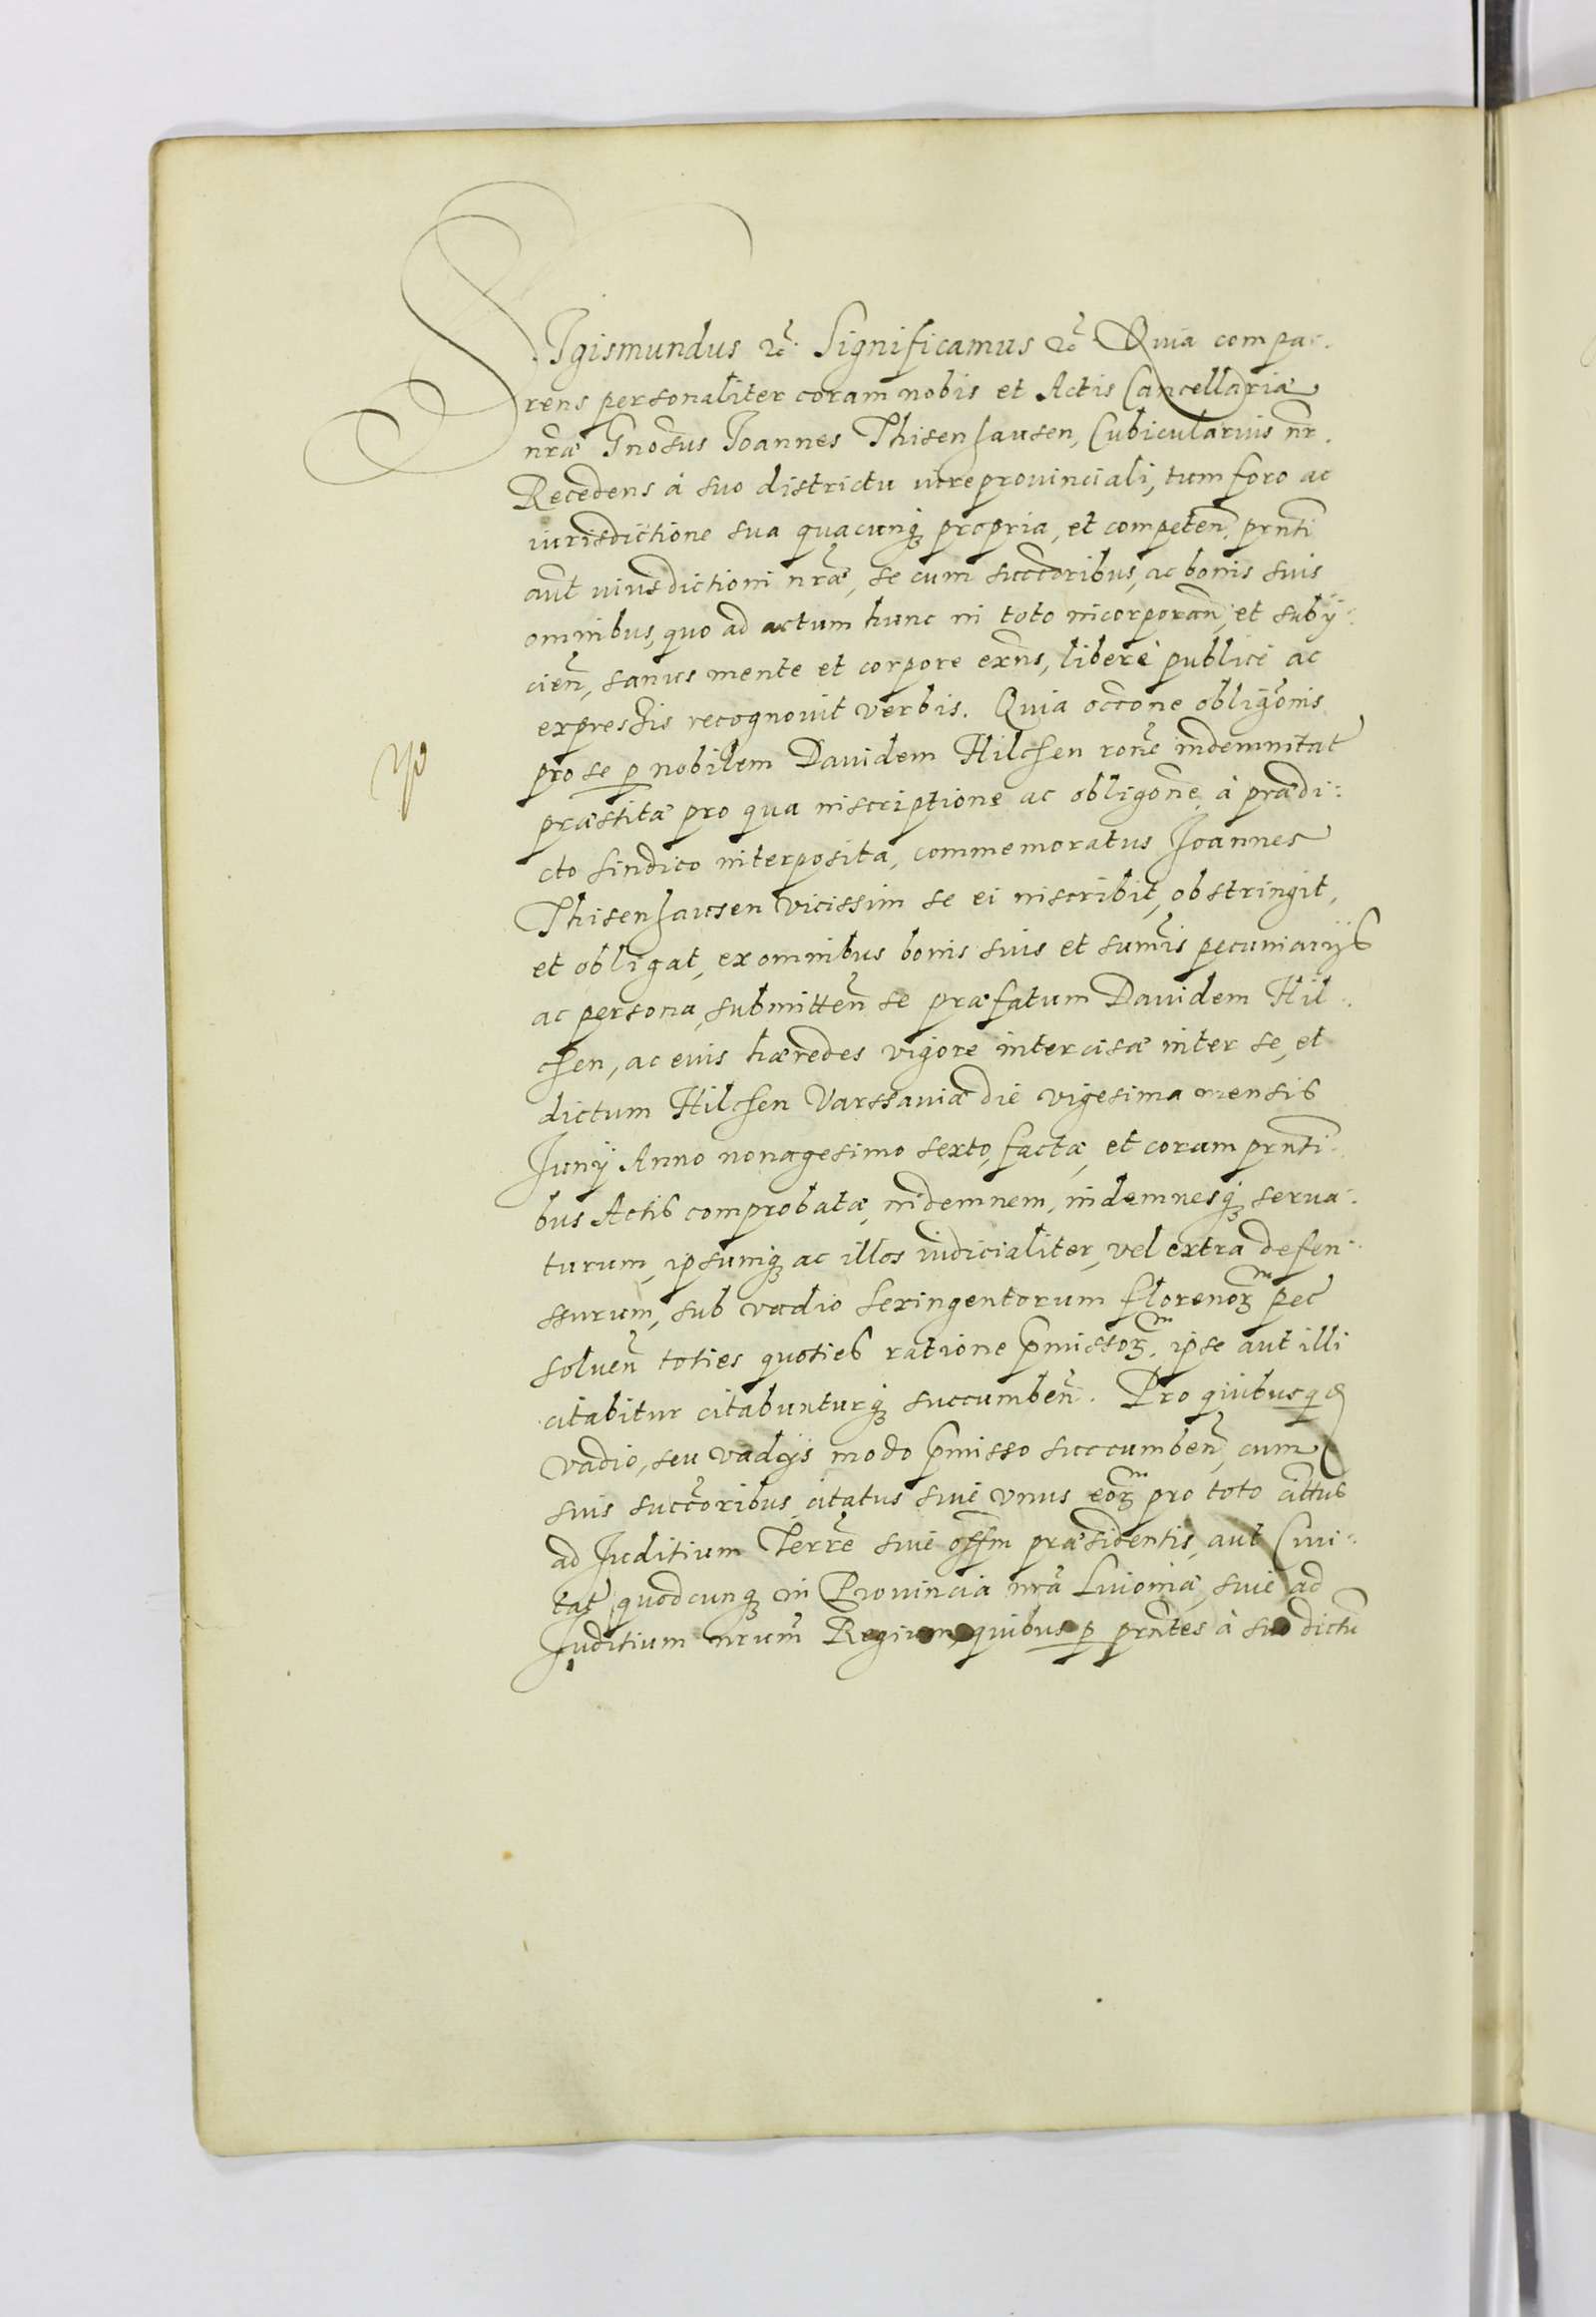 SIgismundus &c̃. Significamus &c̃ Quia compa-
rens personaliter coram nobis et Actis Cancellariæ
nr̃æ Gnosus Joannes Thisenhausen, Cubicularius nr̃.
Recedens à suo districtu iure prouinciali, tum foro ac
iurisdictione sua quacunq́3 propria, et competen̄. prn̄ti
aut̃ iurisdictioni nr̃æ, se cum succ̃oribus, ac bonis suis
omnibus, quo ad actum hunc in toto incorporan̄, et subÿ-
cien̄, sanus mente et corpore exn̄s, liberè publicè ac
expreßis recognouit verbis. Quia occ̃one obligõnis
pro se p nobilem Dauidem Hilchen rõne indemnitat̃
præstitæ pro qua inscriptione ac obligõne à prædi:
cto Sindico interposita, commemoratus Joannes
Thisenhausen vicissim se ei inscribit, obstringit,
et obligat, ex omnibus bonis suis et sum̃is pecuniarijs
ac persona, submitten̄ se præfatum Dauidem Hil-
chen, ac eius hæredes vigore intercisæ inter se, et
dictum Hilchen Varssauiæ die vigesima mensis
Junÿ Anno nonagesimo sexto, factæ, et coram prn̄ti-
bus Actis comprobatæ, indemnem, indemnesq́3 serua-
turum, ipsumq́3 ac illos iudicialiter, vel extra defen-
ssurum, sub vadio Sexingentorum florenoꝝ m pec̃
soluen̄ toties quoties ratione p̄missoꝝ m. ipse aut illi
citabitur citabunturq́3 succumben̄. Pro quibusq
vadio, seu vadijs modo p̄misso succumben̄, cum
suis succ̃oribus citatus siue vnus eoꝝ m pro toto cittus
ad Juditium Terrẽ siue off̃m præsidentis, aut Ciui-
tat̃, quodcunq́3 in Prouincia nr̃a Liuoniæ, siue ad
Juditium nrum̃ Regium, quibus p prñtes à suo dictũ